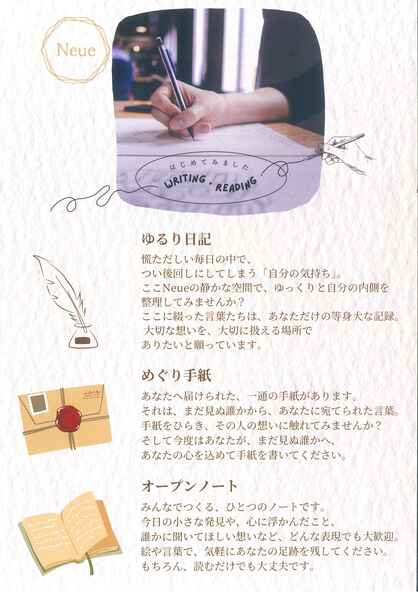 Neue
はじめてみました
WRITING・READING
ゆるり日記
慌ただしい毎日の中で、
つい後回しにしてしまう「自分の気持ち」。
ここNeueの静かな空間で、ゆっくりと自分の内側を
整理してみませんか？
ここに綴った言葉たちは、あなただけの等身大な記録。
大切な想いを、大切に扱える場所で
ありたいと願っています。
めぐり手紙
あなたへ届けられた、一通の手紙があります。
それは、まだ見ぬ誰かから、あなたに宛てられた言葉。
手紙をひらき、その人の想いに触れてみませんか？
そして今度はあなたが、まだ見ぬ誰かへ、
あなたの心を込めて手紙を書いてください。
オープンノート
みんなでつくる、ひとつのノートです。
今日の小さな発見や、心に浮かんだこと、
誰かに聞いてほしい想いなど、どんな表現でも大歓迎。
絵や言葉で、気軽にあなたの足跡を残してください。
もちろん、読むだけでも大丈夫です。